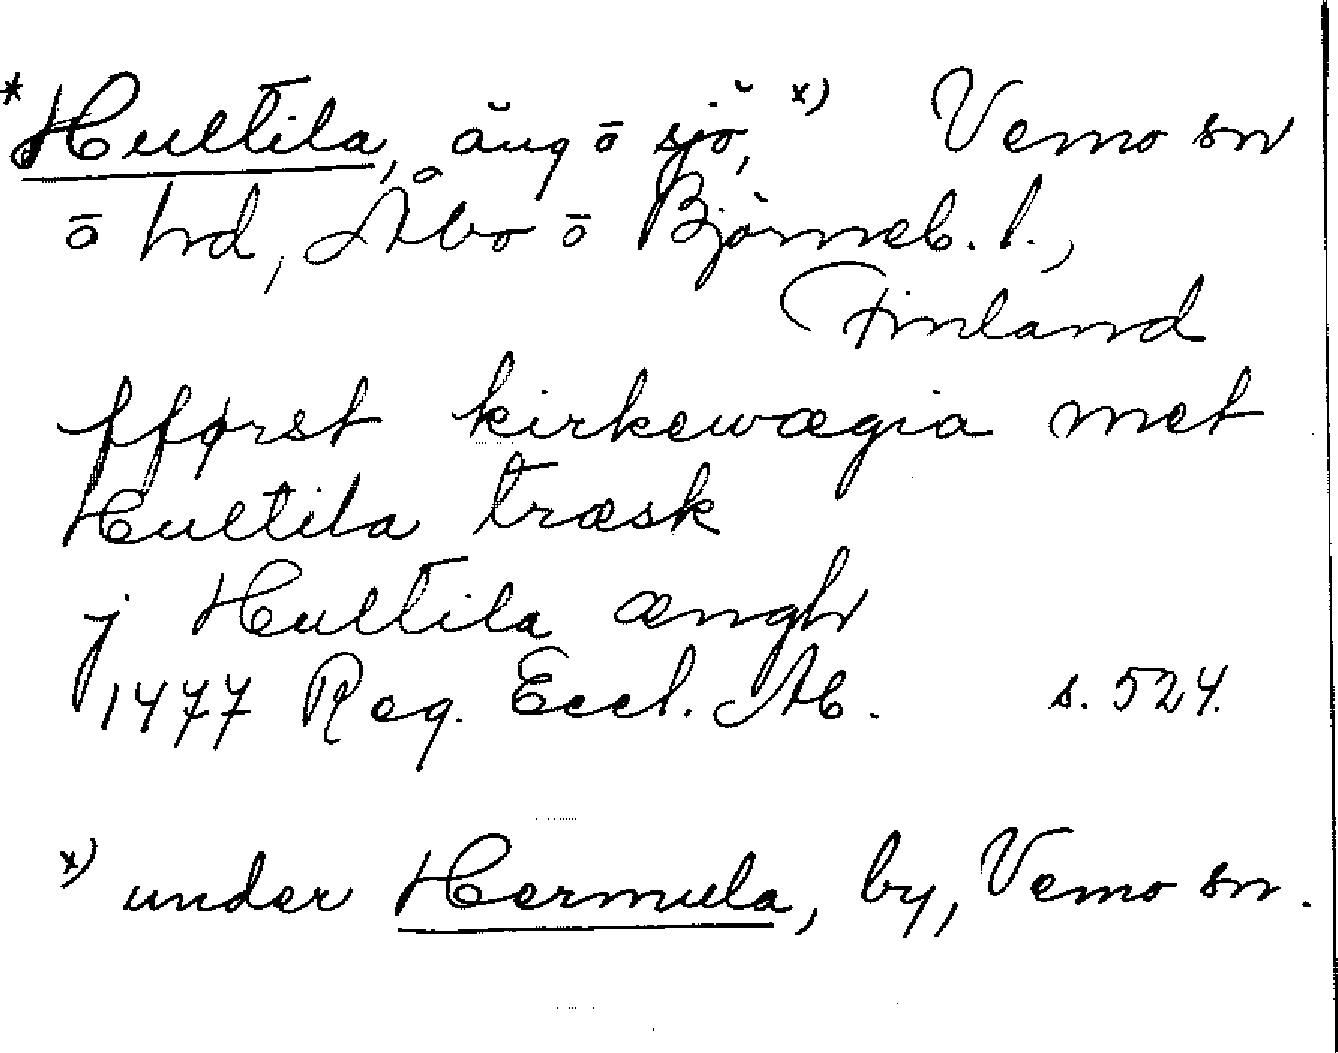 *Hultila, äng ō sjö, x) Vemo sn
ō hd, Åbo ō Björneb. l.,
Finland
fførst kirkewægia met
Hultila træsk
j Hultila ængh
1477 Reg. Eccl. Ab. s. 524.
x) under Hermula, by, Vemo sn.